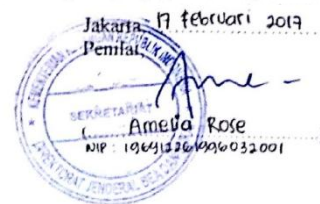 Jakarta, 17 Februari 2017
Penilai
SEKRETARIAT
( Amelia Rose
NIP : 196912261996032001